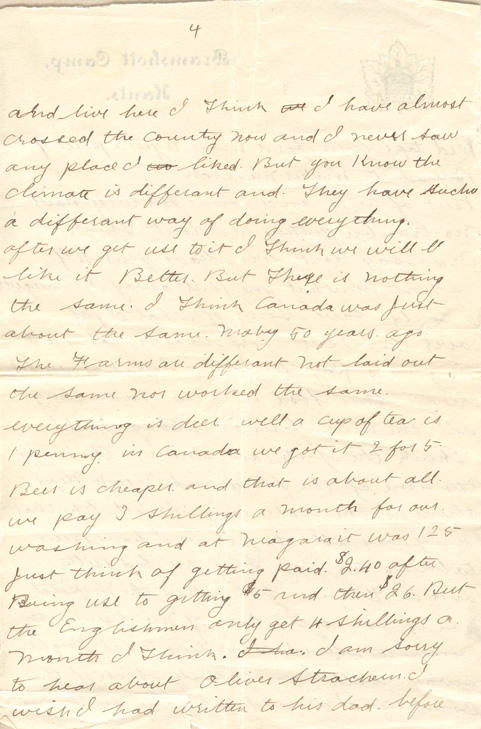 4
and live here I Think I have almost
crossed the county now and I never saw
any place I liked. But you Know the
climate is different and. They have such
a differant way of doing everything.
after we get use to it I Think we will
like it Better. But There is nothing
the same. I Think Canada was Just
about the same. Maby 50 years. ago
The Farms are different not laid out
the same nor worked the same.
everything is deer well a cup of tea is
1 penny. in Canada we got it 2 for 5
Beer is cheaper and that is about all.
we pay 3 shillings a month for our
washing and at Niagara it was 125
Just think of getting paid. $2.40 after
Being use to getting $5 and then $26. But
the Englishmen only get 4 shillings a.
Month I Think. I am sorry
to hear about Oliver Strachein. I
wish I had written to his dad. before
Bramshott Camp,
Hants.